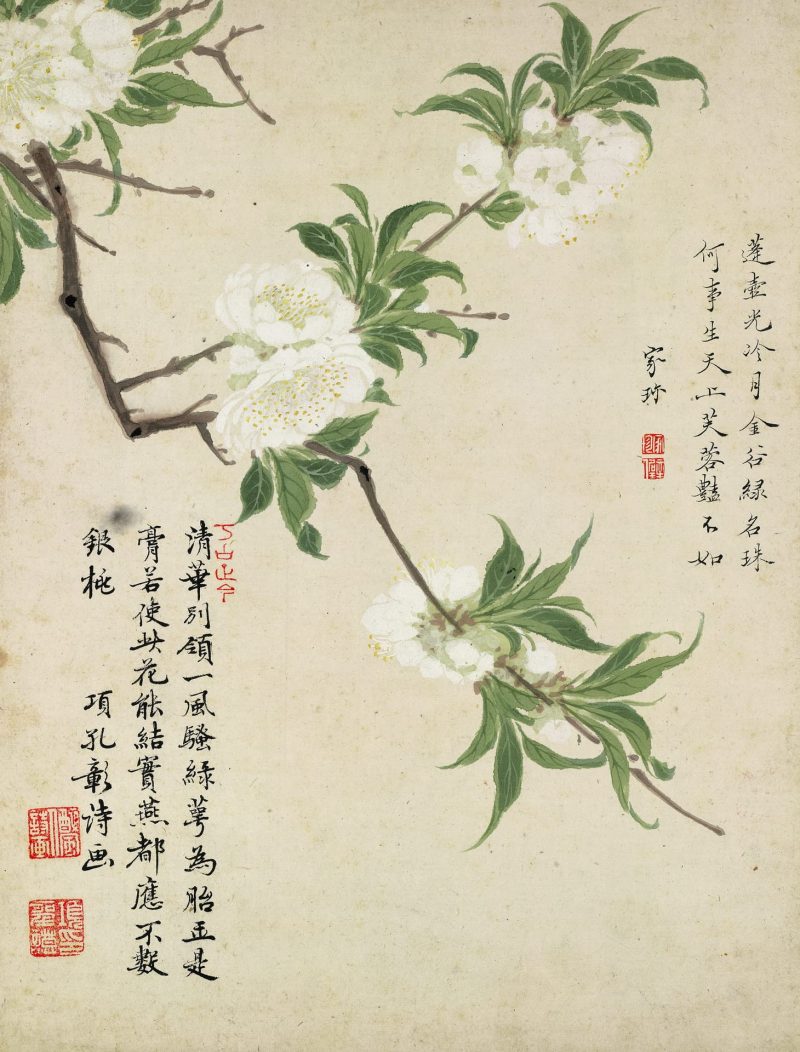 蓬壺光冷月金谷緑名珠
何事生天上芙蓉豔不如
家
清華別領一風騷緑萼為胎玉是
膏若使此花能結實燕都應不數
銀桃 項孔彰詩画